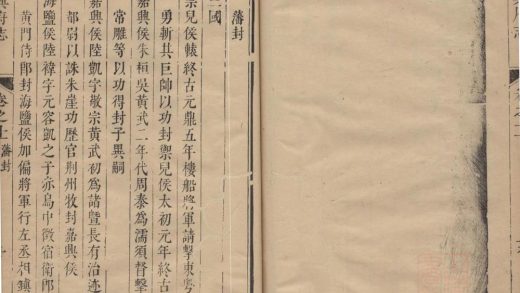 藩封
兒侯轅終古元鼎五年樓船將軍請擊東粵
勇斬其巨帥以功封禦兒侯太初元年終古
三國
嘉興侯朱桓吳黃武二年代周泰為濡須督擊
常雕等以功得封子異嗣
嘉興侯陸凱字敬宗黃武初為諸暨長有治迹
都弱以誅朱崖功歷官荊州牧封嘉興侯
海鹽侯陸禕字元容凱之子亦烏中徵宿衛郎
黃門侍郎封海鹽侯加偏將軍行左丞相鎮
興府志
卷之十 藩封